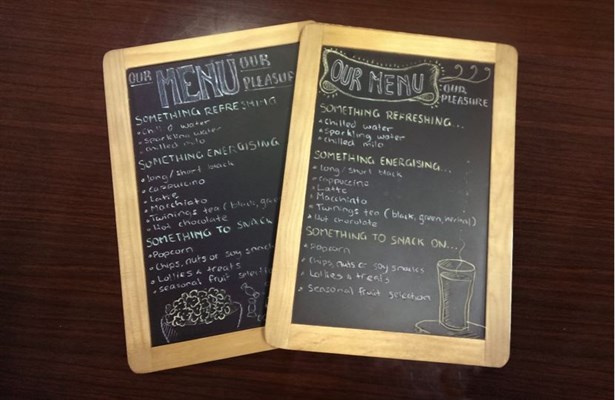 OUR MENU OUR
PLEASURE
SOMETHING REFRESHING
• Chilled water
• Sparkling water
• Chilled milo
SOMETHING ENERGISING
• long/short black
• Cappuccino
• Latte
• Macchiato
• Twinings tea (black, gre
• Hot chocolate
SOMETHING TO SNACK
• Popcorn
• Chips, nuts or soy snack
• Lollies & treats
• Seasonal fruit sele
OUR MENU
OUR
PLEASURE
SOMETHING REFRESHING...
• Chilled water
• Sparkling water
• Chilled milo
SOMETHING ENERGISING...
• long/short black
• Cappuccino
• Latte
• Macchiato
• Twinings tea (black, green, herbal)
• Hot chocolate
SOMETHING TO SNACK ON...
• Popcorn
• Chips, nuts or soy snacks
• Lollies & treats
• Seasonal fruit selection